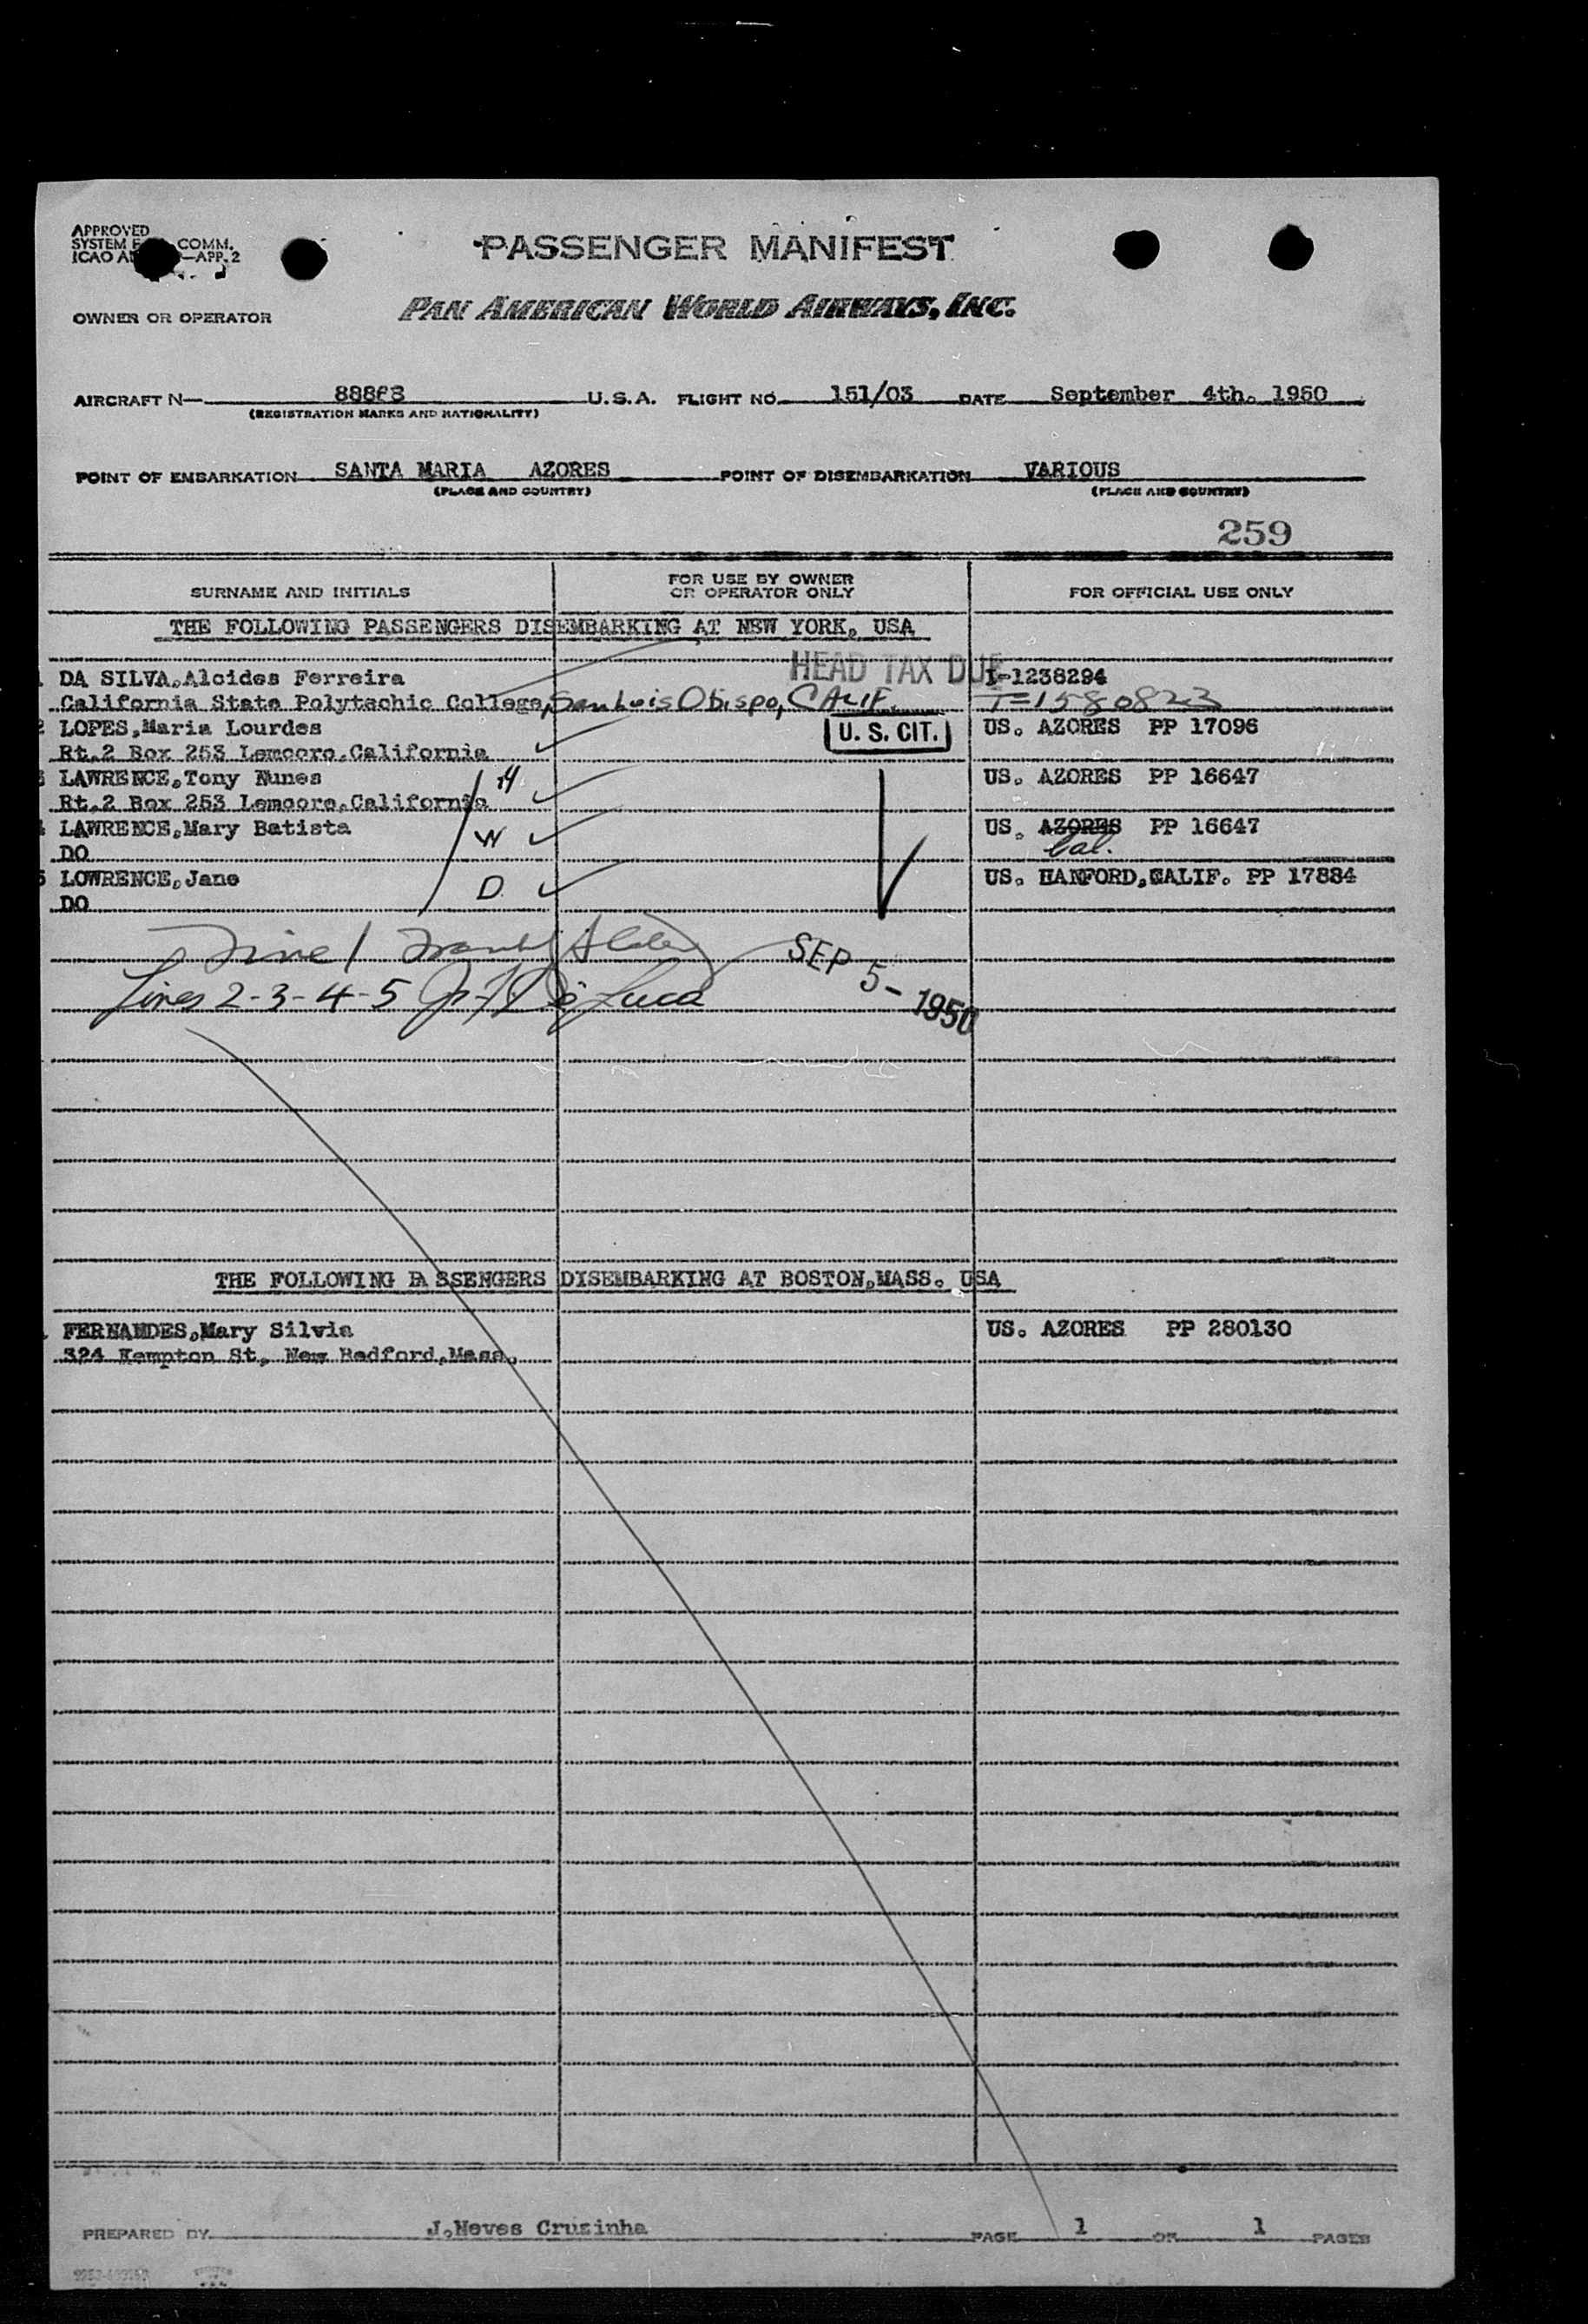 APPROVED
SYSTEM COMM.
ICAO —APP. 2
PASSENGER MANIFEST
OWNER OR OPERATOR PAN AMERICAN WORLD AIRWAYS, INC.
AIRCRAFT N— U.S.A. FLIGHT NO. 151/03 DATE September 4th. 1950
(REGISTRATION MARKS AND NATIONALITY)
POINT OF EMBARKATION SANTA MARIA AZORES POINT OF DISEMBARKATION VARIOUS
(PLACE AND COUNTRY) (PLACE AND COUNTRY)
259
SURNAME AND INITIALS FOR USE BY OWNER OR OPERATOR ONLY FOR OFFICIAL USE ONLY
THE FOLLOWING PASSENGERS DISEMBARKING AT NEW YORK. USA
HEAD TAX DUE
DA SILVA,Alcides Ferreira I-1238294
California State Polytechic College, San Luis Obispo, CALIF. T-1580823
2 LOPES,Maria Lourdes U. S. CIT. US. AZORES PP 17096
Rt.2 Box 253 Lemoore,California
3 LAWRENCE,Tony Nunes H US. AZORES PP 16647
Rt.2 Box 253 Lemoore,California
4 LAWRENCE,Mary Batista W US. AZORES PP 16647
DO Cal.
5 LOWRENCE,Jane D. US. HANFORD,CALIF. PP 17884
DO
Line 1 Frank
SEP 5 - 1950
Lines 2-3-4-5 De Luca
THE FOLLOWING PASSENGERS DISEMBARKING AT BOSTON,MASS. USA
FERNANDES,Mary Silvia US. AZORES PP 280130
324 Kempton St, New Bedford,Mass.
PREPARED BY J.Neves Cruzinha PAGE 1 OF 1 PAGES